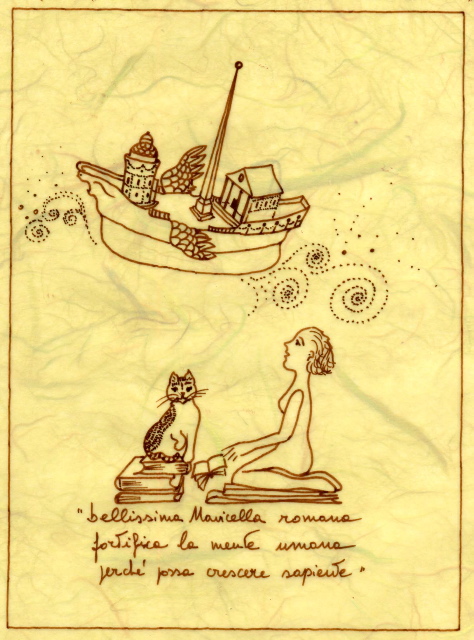 "bellissima Mavicella romana
fortifica la mente umana
perché possa crescere sapiente"